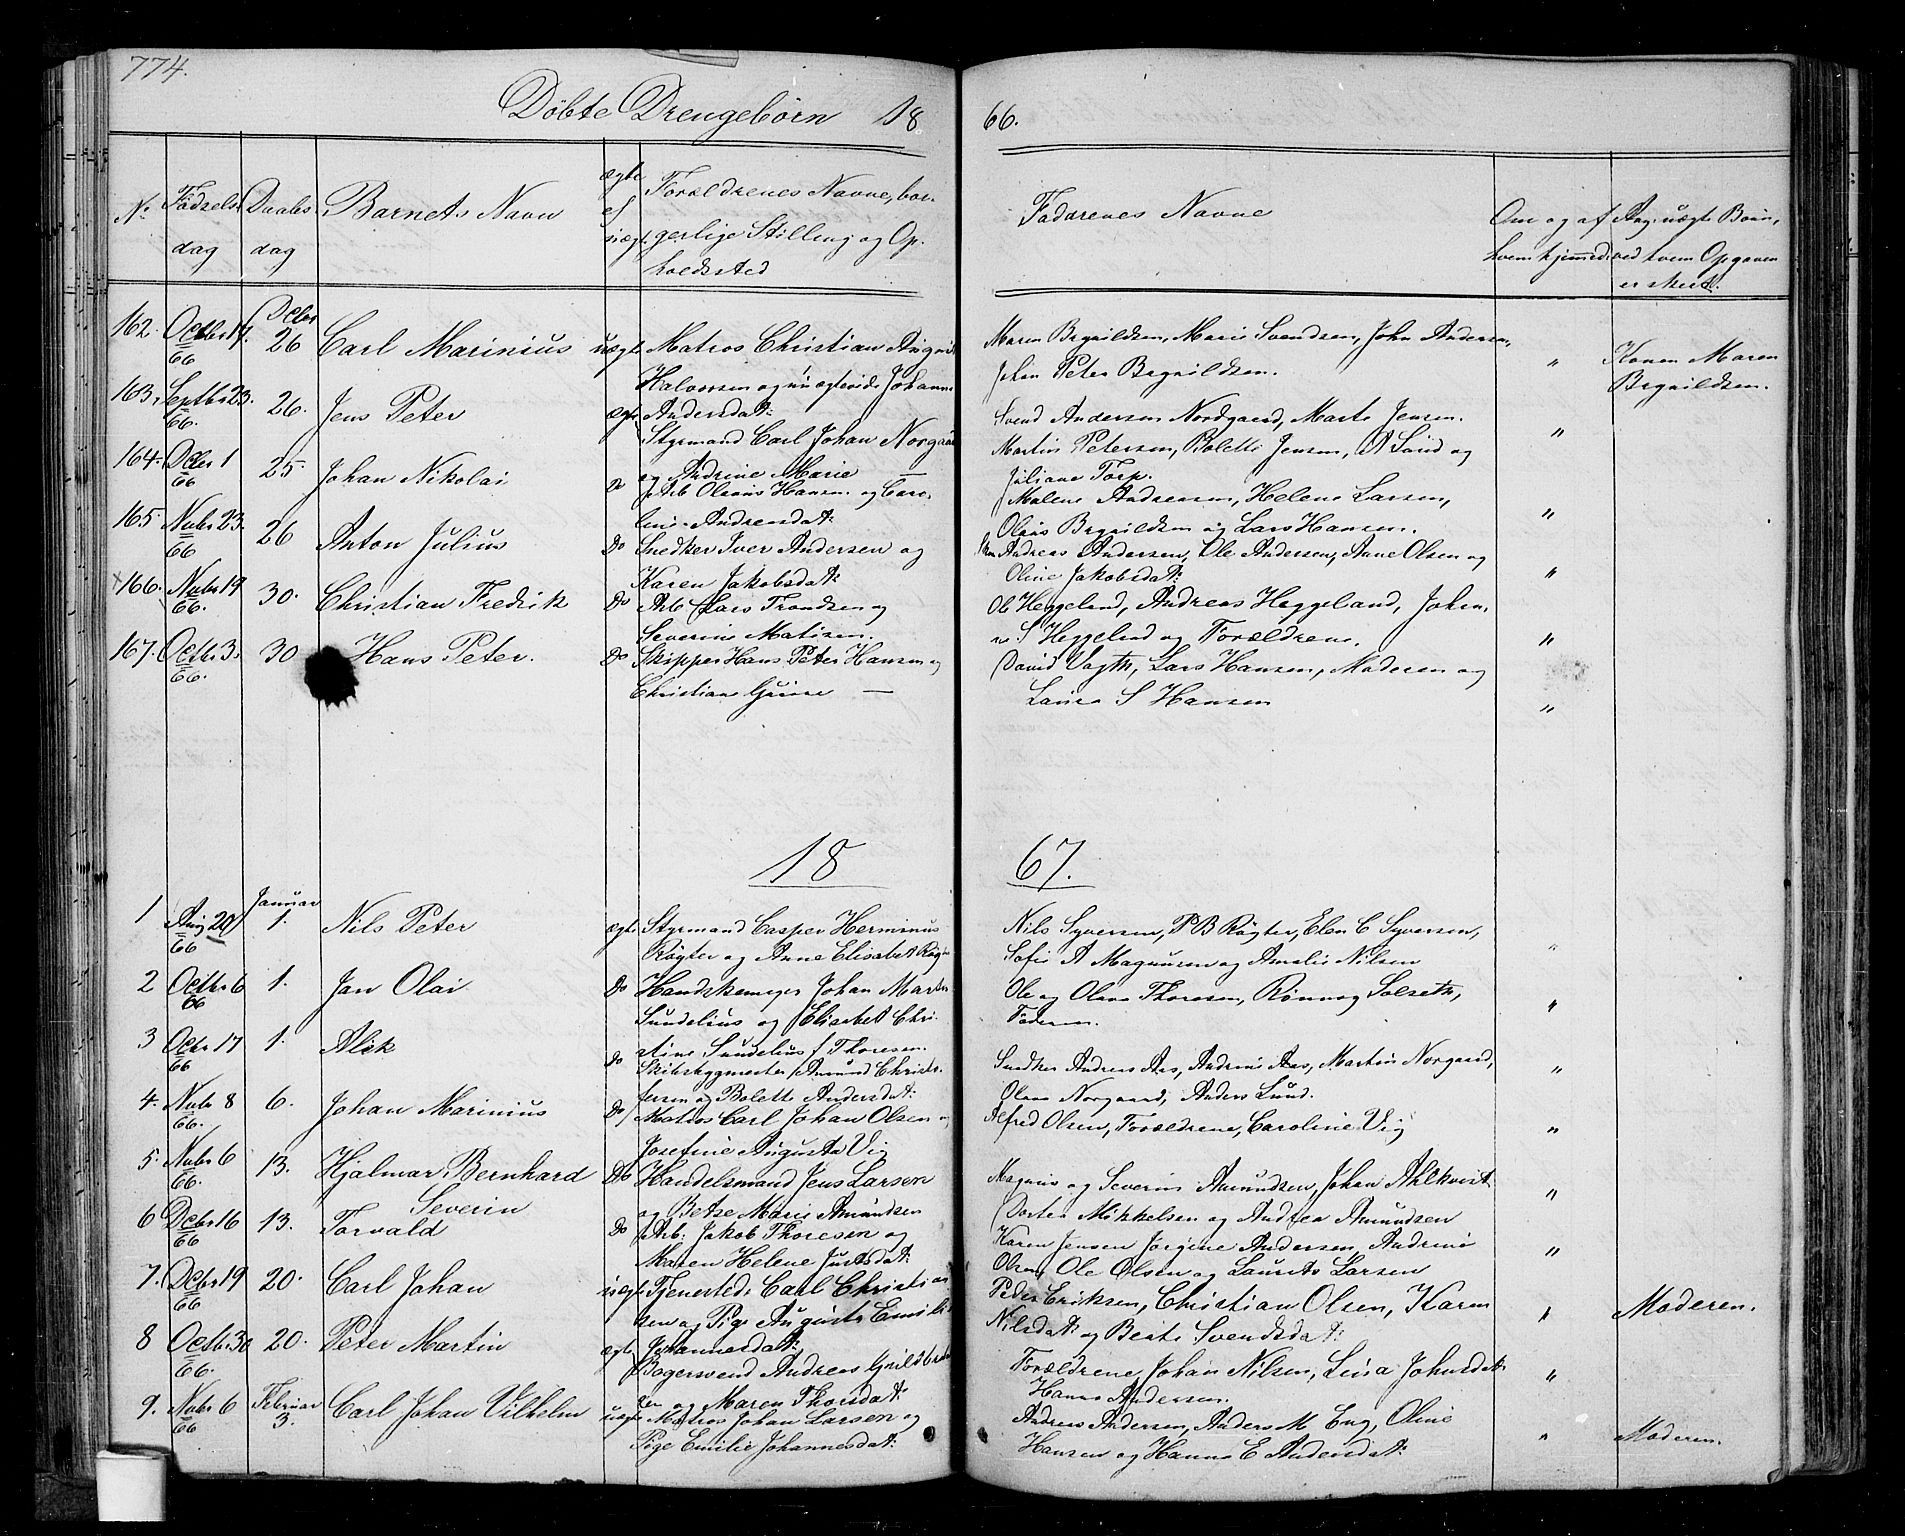 774.
Döbte Drengebörn 1866.
No Födselsdag Daabsdag Barnets Navn ægte el. uægte Forældrenes Navne, borgerlige Stilling og Opholdssted Faddrenes Navne Om og af hvem hjemmed. Ang. uægte Börn, ved hvem Opgaven er skeet.
162. Octbr 17. 66 Dcbr 26 Carl Marinius uægte Matros Christian August Halvorsen og Johanne Andersdat: Maren Brynildsen, Marie Svendsen, John Andersen, Johan Peter Brynildsen. " Konen Maren Brynildsen.
163. Septbr 23. 66. 26. Jens Peter ægte Styrmand Carl Johan Norgaard og Andrine Marie — Svend Andersen Nordgaard, Marte Jensen. Martin Petersen, Bolette Jensen, A Lund og Juliane Torp. "
164. Dcbr 1 66 25. Johan Nikolai Do Arb Olaus Hansen og Caroline Andreasdat: Malene Andreasen, Helene Larsen, Olaus Brynildsen og Lars Hansen. "
165. Nvbr 23. 66 26 Anton Julius Do Snedker Iver Andersen og Karen Jakobsdat: Andreas Andersen, Ole Andersen, Anne Olsen og Oline Jakobsdat: "
166. Nvbr 19 66. 30. Christian Fredrik Do Arb Lars Trondsen og Severine Matisen. Ol Heggeland, Andreas Heggeland, Johanne S Heggeland og Forældrene. "
167. Octbr 3. 66. 30 Hans Peter. Do Skipper Hans Peter Hansen og Christiane — David Vogth, Lars Hansen, Moderen og Laura S Hansen "
1867.
1 Aug 29 66 Januar 1. Nils Peter ægte Styrmand Casper Herminus Røgter og Anne Elisabet Nils Syversen, P B Røgter, Elen C Syversen, Sofie A Magnusen og Amalie Nilsen "
2 Octbr 6 66 1. Jan Olai Do Handskemager Johan Martin Sundelius og Elisabet Christine Sundelius f Thoresen. Ole og Olava Thoresen, Rønnog Solseth, Faderen. "
3 Octbr 17 66 1. Alek Do Skibsbygmester Amund Christofersen og Bolette Andersdat: Snedker Andreas Aas, Andrine Aas, Martin Norgaard, Olava Norgaard, Anders Lund. "
4. Nvbr 8 66. 6. Johan Marinius Do Matros Carl Johan Olsen og Josefine Augusta Vig Alfred Olsen, Forældrene, Caroline Vig "
5. Nvbr 6 66. 13. Hjalmar Bernhard Severin Do Handelsmand Jens Larsen og Betze Marie Amundsen Magnus og Severin Amundsen, Johan Ahlkvist, Dortea Mikkelsen og Andrea Amundsen "
6 Dcbr 16 66 13. Torvald Do Arb: Jakob Thoresen og Maren Helene Karen Jensen Jørgine Andersen, Andrine Olsen, Ole Olsen og Laurits Larsen "
7. Dcbr 19 66 20. Carl Johan uægte Tjenerstedr. Carl Christiansen og Pige Augusta Emilie Johannesdat: Peder Eriksen, Christian Olsen, Karen Nilsdat: og Beate Svendsdat: " Moderen.
8 Octbr 30 66. 20. Peter Martin ægte Bagersvend Andreas og Maren Thorsdat: Forældrene Johan Nilsen, Lina Johnsdat Hanna Andersen. "
9. Nvbr 6 66 Februar 3. Carl Johan Vilhelm uægte Matros Johan Larsen og Pige Emilie Johannesdat: Andreas Andersen, Anders M Eng, Oline Hansen og Hanna E Andersdat: " Moderen.